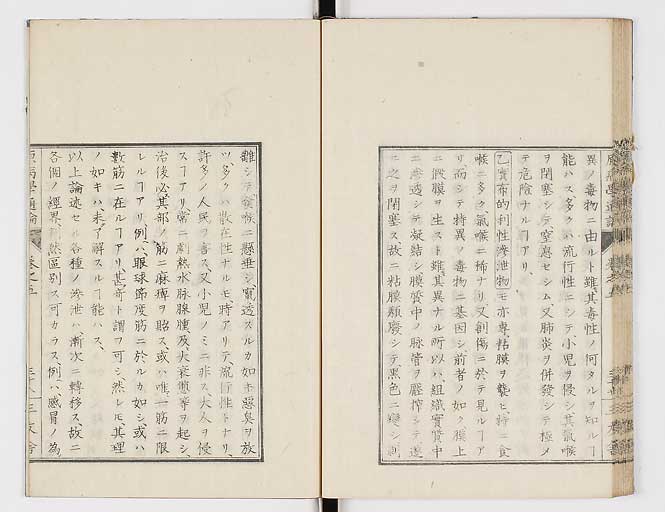 異ノ毒物ニ由ルト雖其毒性ノ何タルヲ知ルヿ
能ハス多クハ流行性ニシテ小児ヲ侵シ其氣喉
ヲ閉塞シテ窒息セシム又肺炎ヲ併發シテ極メ
テ危險ナルヿアリ
乙實布的利性滲泄物モ亦專粘膜ヲ襲ヒ特ニ食
喉ニ多ク氣喉ニ稀ナリ又創傷ニ於テ見ルヿア
リ而シテ特異ノ毒物ニ基因シ前者ノ如ク膜上
ニ假膜ヲ生スト雖其異ナル所以ハ組織實質中
ニ滲透シテ凝結シ膜質中ノ脉管ヲ壓搾シテ遂
ニ之ヲ閉塞ス故ニ粘膜類廢シテ黑色ニ變シ剥
離シテ食喉ニ懸垂シ竄透スルカ如キ惡臭ヲ放
ツ多クハ散在性ナルモ時アリテ流行性トナリ
許多ノ人民ヲ害ス又小児ノミニ非ス大人ヲ侵
スヿアリ常ニ劇熱水脉腺腫及大衰憊等ヲ起シ
治後必其部ノ筋ニ麻痺ヲ貽ス或ハ唯一筋ニ限
レルヿアリ例ハ眼球節度筋ニ於ルカ如シ或ハ
數筋ニ在ルヿアリ甚奇ト謂フ可シ然レモ其理
ノ如キハ未了解スルヿ能ハス
以上論述セル各種ノ滲泄ハ漸次ニ轉移ス故ニ
各個ノ經界判然區別ス可カラス例ハ感冒ノ為
原病學通論
卷之五
三友舎